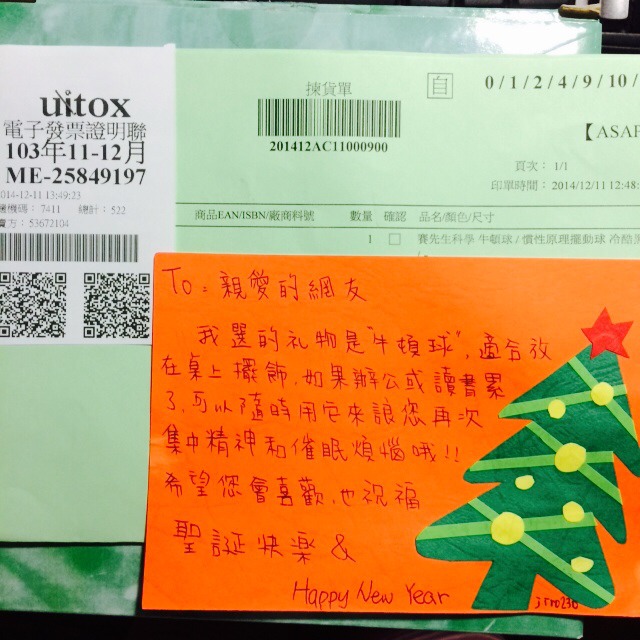 uitox
電子發票證明聯
103年11-12月
ME-25849197
2014-12-11 13:49:23
機碼： 7411 總計： 522
賣方： 53672104
揀貨單
201412AC11000900
自
0/1/2/4/9/10/
【ASAP
頁次： 1/1
印單時間：2014/12/11 12:48:
商品EAN/ISBN/廠商料號 數量 確認 品名/顏色/尺寸
1 □ 賽先生科學 牛頓球 / 慣性原理擺動球 冷酷黑
To：親愛的網友
我選的礼物是"牛頓球"，適合放
在桌上擺飾，如果辦公或讀書累
了，可以隨時用它來讓您再次
集中精神和催眠煩惱哦!!
希望您會喜歡，也祝福
聖誕快樂 &
Happy New Year